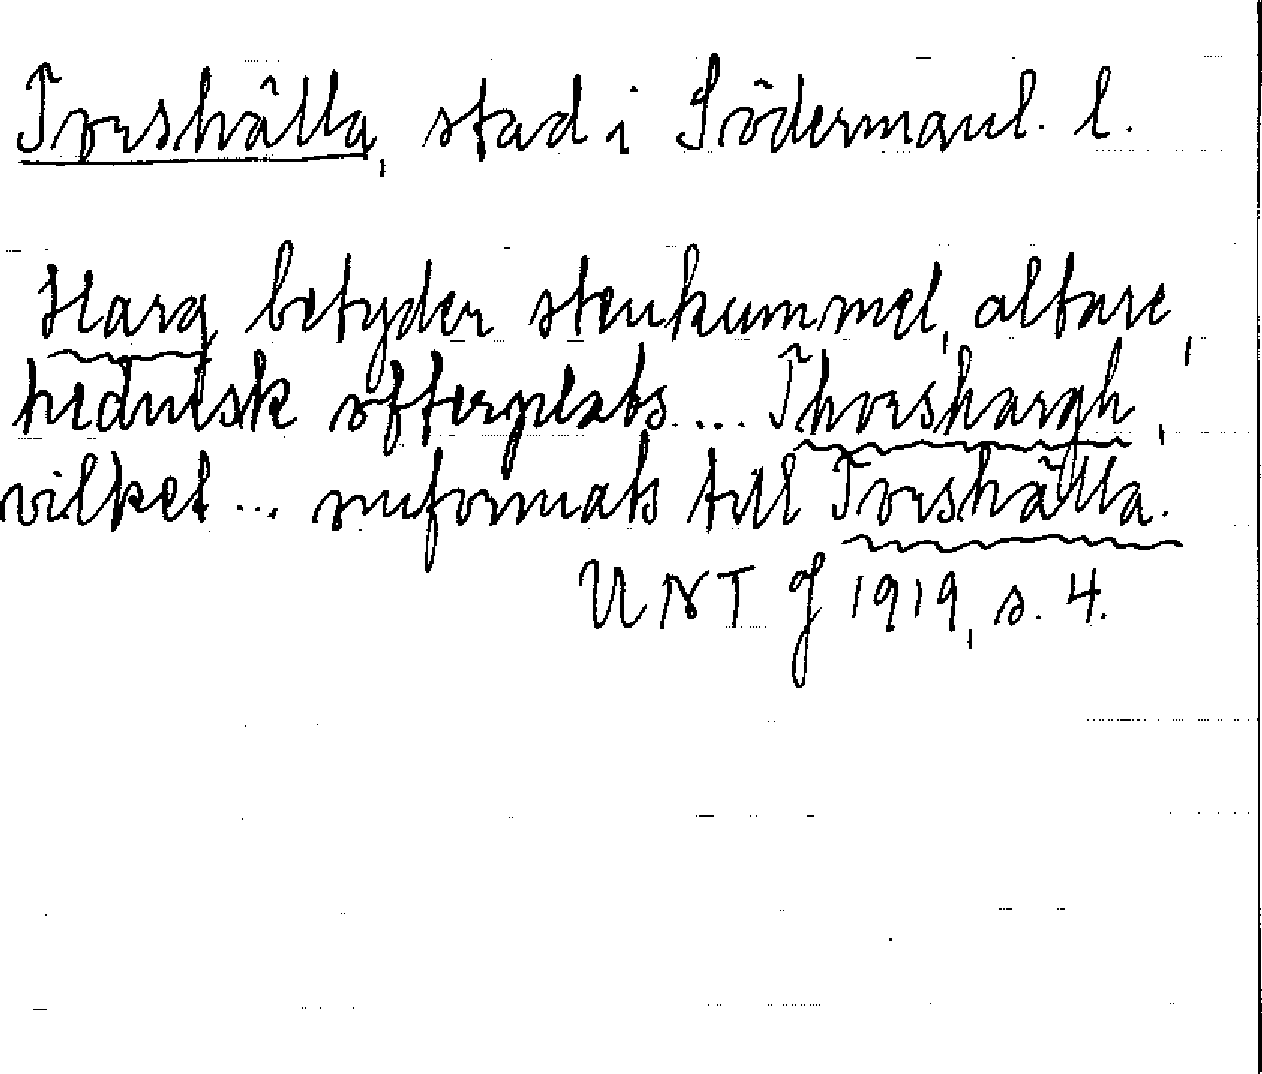 Torshälla, stad i Södermanl. l.
Harg betyder stenkummel, altare,
hednisk offerplats... Thorshargh,
vilket ... omformats till Torshälla.
UNT J 1919, s. 4.